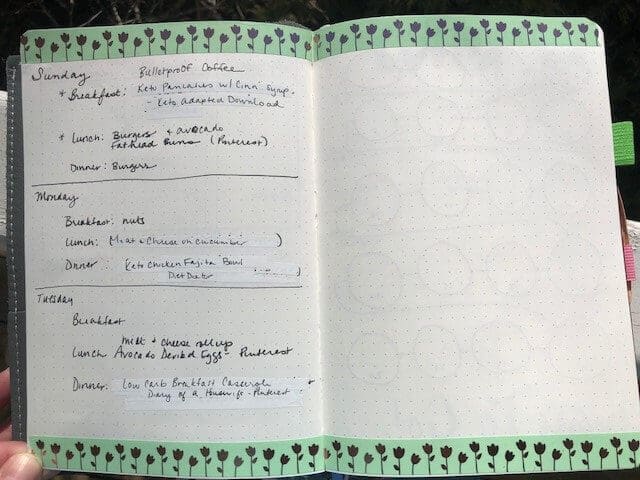 Sunday Bulletproof Coffee
* Breakfast: Keto Pancakes w/ Cinn Syrup
- Keto Adapted Download
* Lunch: Burgers + avocado
Fathead Buns (Pinterest)
Dinner: Burgers
Monday
Breakfast: nuts
Lunch: (Meat + Cheese on cucumber )
Dinner: Keto Chicken Fajita Bowl
Diet Doctor )
Tuesday
Breakfast
meat + cheese rollup
Lunch Avocado Deviled Eggs - Pinterest
Dinner: Low Carb Breakfast Casserole
Diary of a Housewife - Pinterest